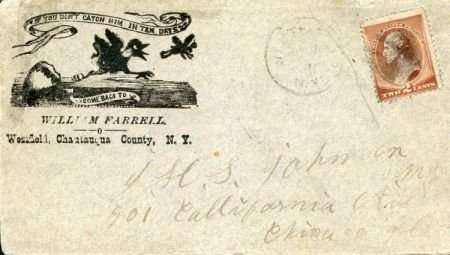 IF YOU DON'T CATCH HIM IN TEN DAYS
COME BACK TO
WILLIAM FARRELL,
Westfield, Chautauqua County, N. Y.
N.Y.
TWO 2 CENTS
H. S. Johnson
901 Callifornia
Chicago